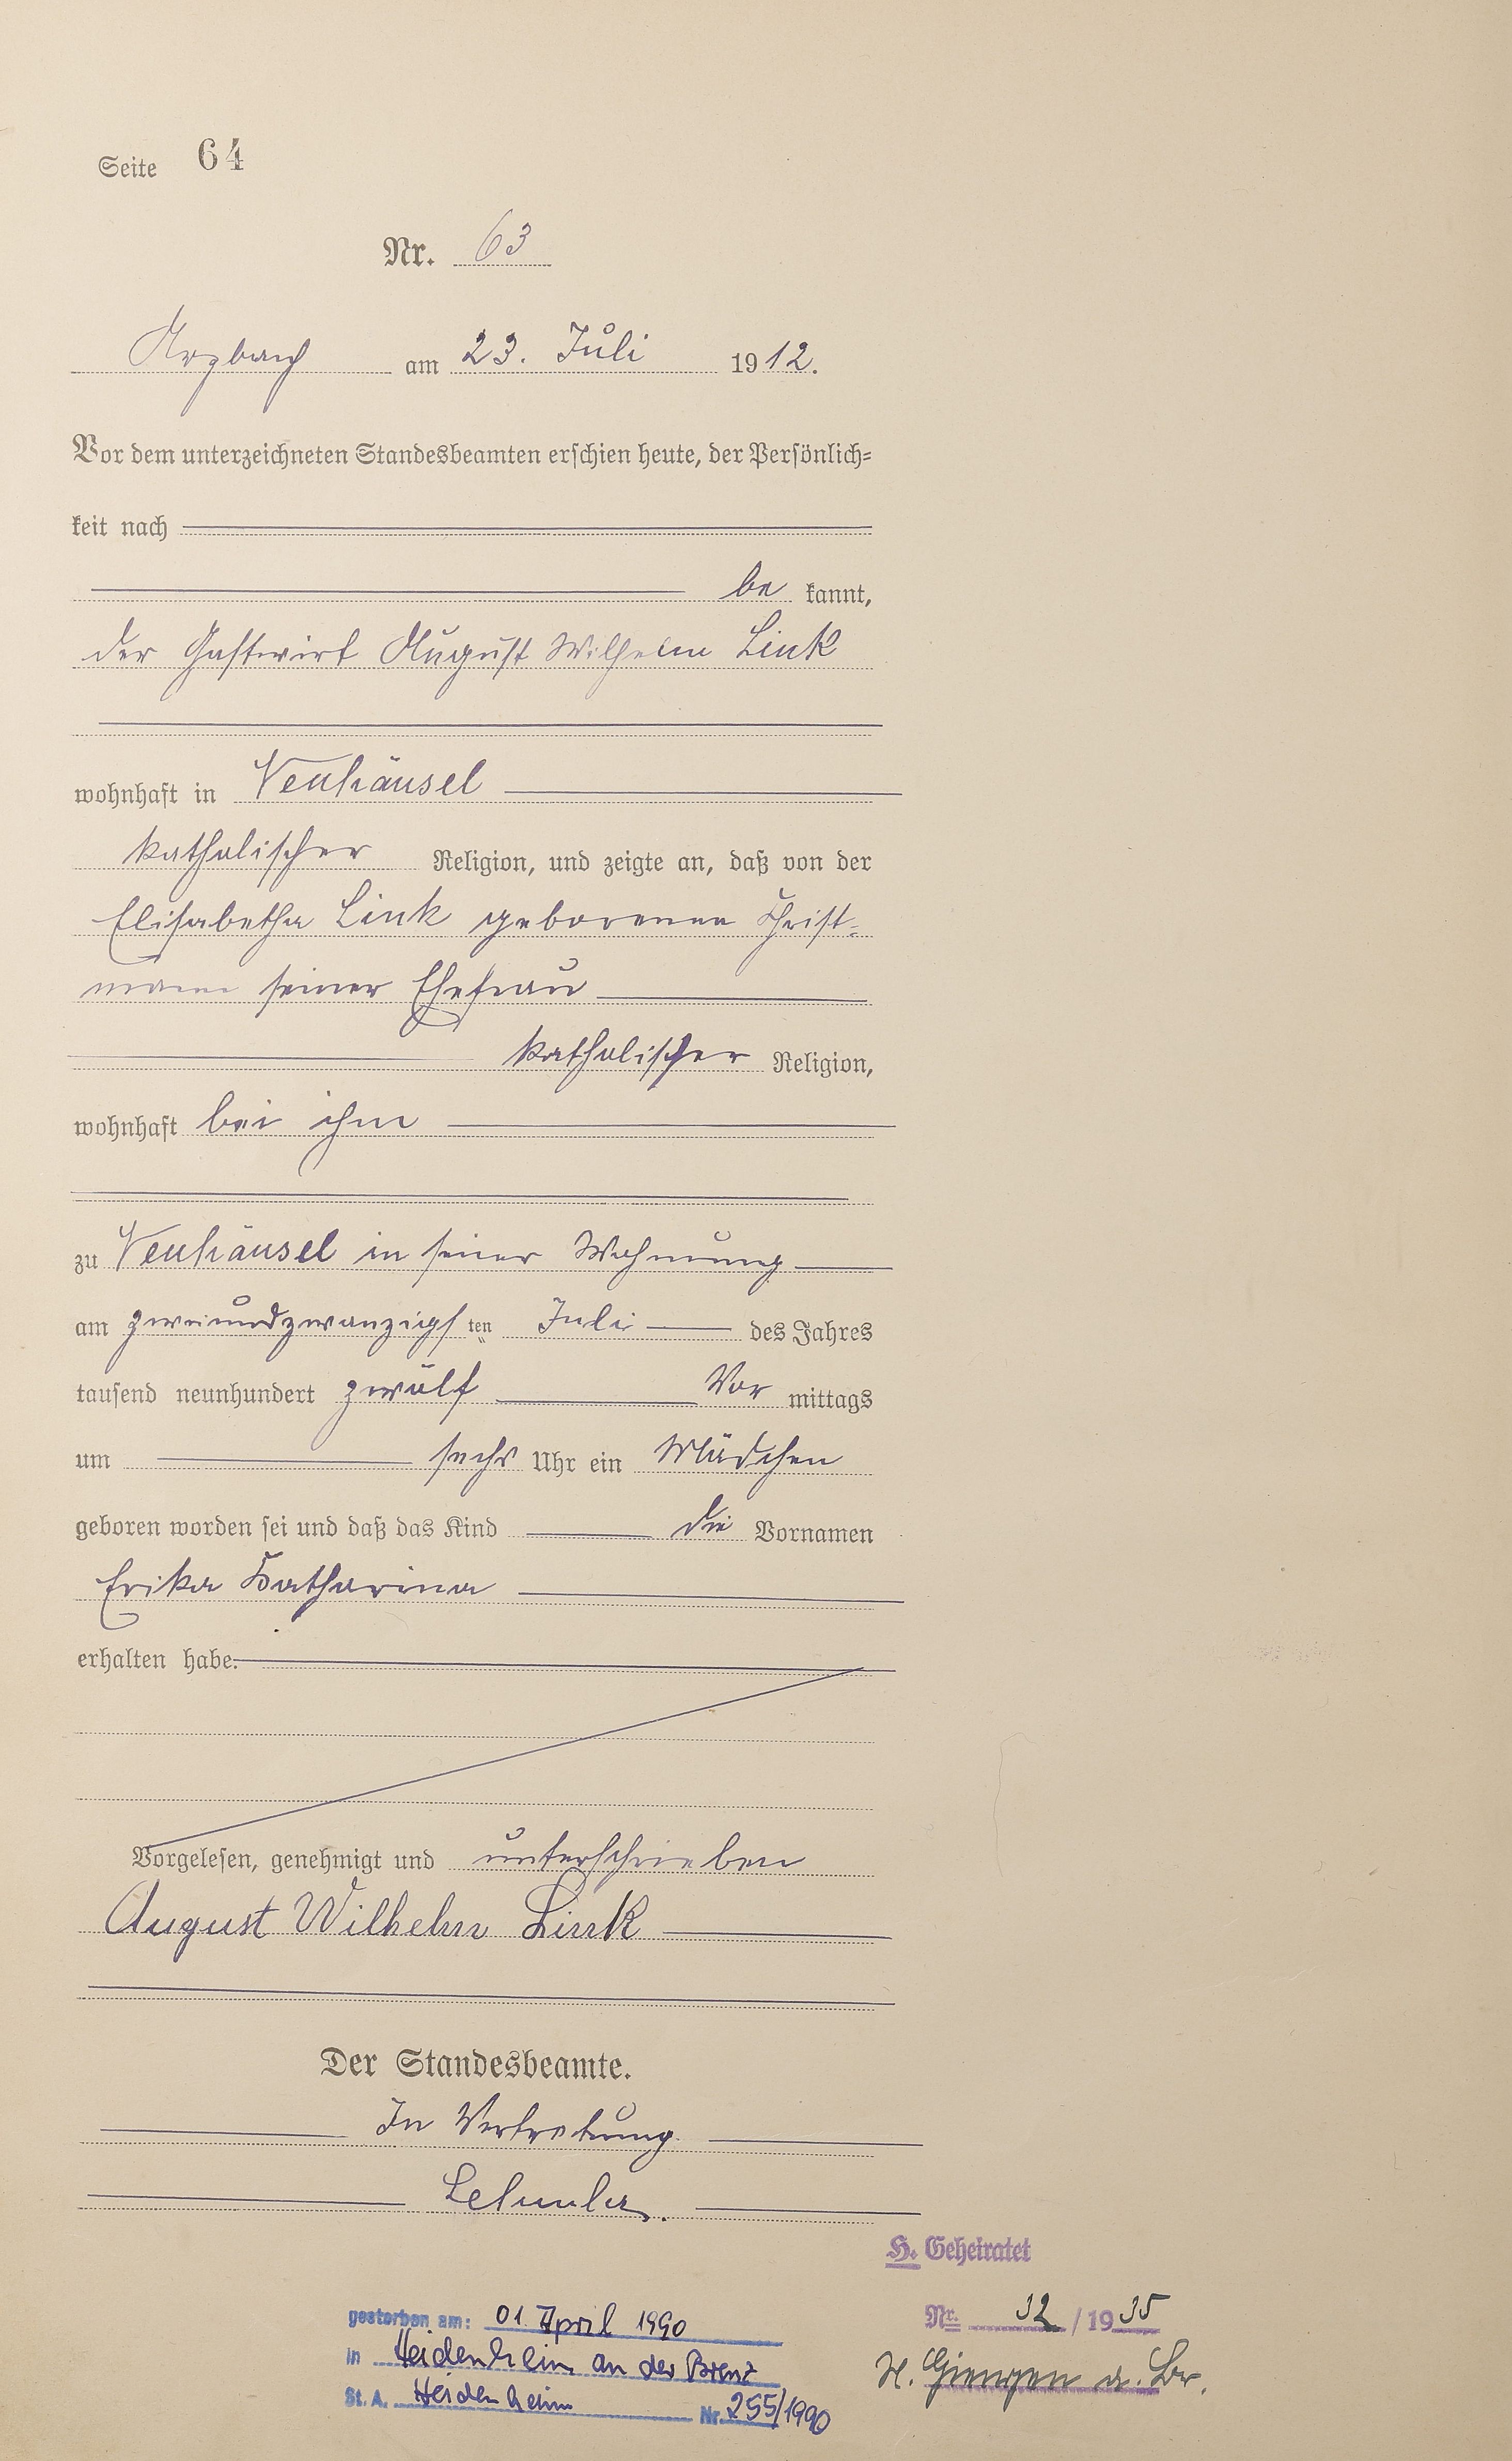 Seite 64
Nr. 63
Arzbach am 23. Juli 1912.
Vor dem unterzeichneten Standesbeamten erschien heute, der Persönlich=
keit nach
be kannt,
der Gastwirt August Wilhelm Link
wohnhaft in Neuhäusel
katholischer Religion, und zeigte an, daß von der
Elisabetha Link geborenen Christ-
mann seiner Ehefrau
katholischer Religion,
wohnhaft bei ihm
zu Neuhäusel in seiner Wohnung
am zweiundzwanzigsten Juli des Jahres
tausend neunhundert zwölf Vor mittags
um sechs Uhr ein Mädchen
geboren worden sei und daß das Kind die Vornamen
Erika Katharina
erhalten habe.
Vorgelesen, genehmigt und unterschrieben
August Wilhelm Link
Der Standesbeamte.
In Vertretung.
H. Geheiratet
Nr. 32 / 1935
Giengen a. Br.
gestorben am: 01. April 1990
in Heidenheim an der Brenz
St. A. Heidenheim Nr. 255/1990